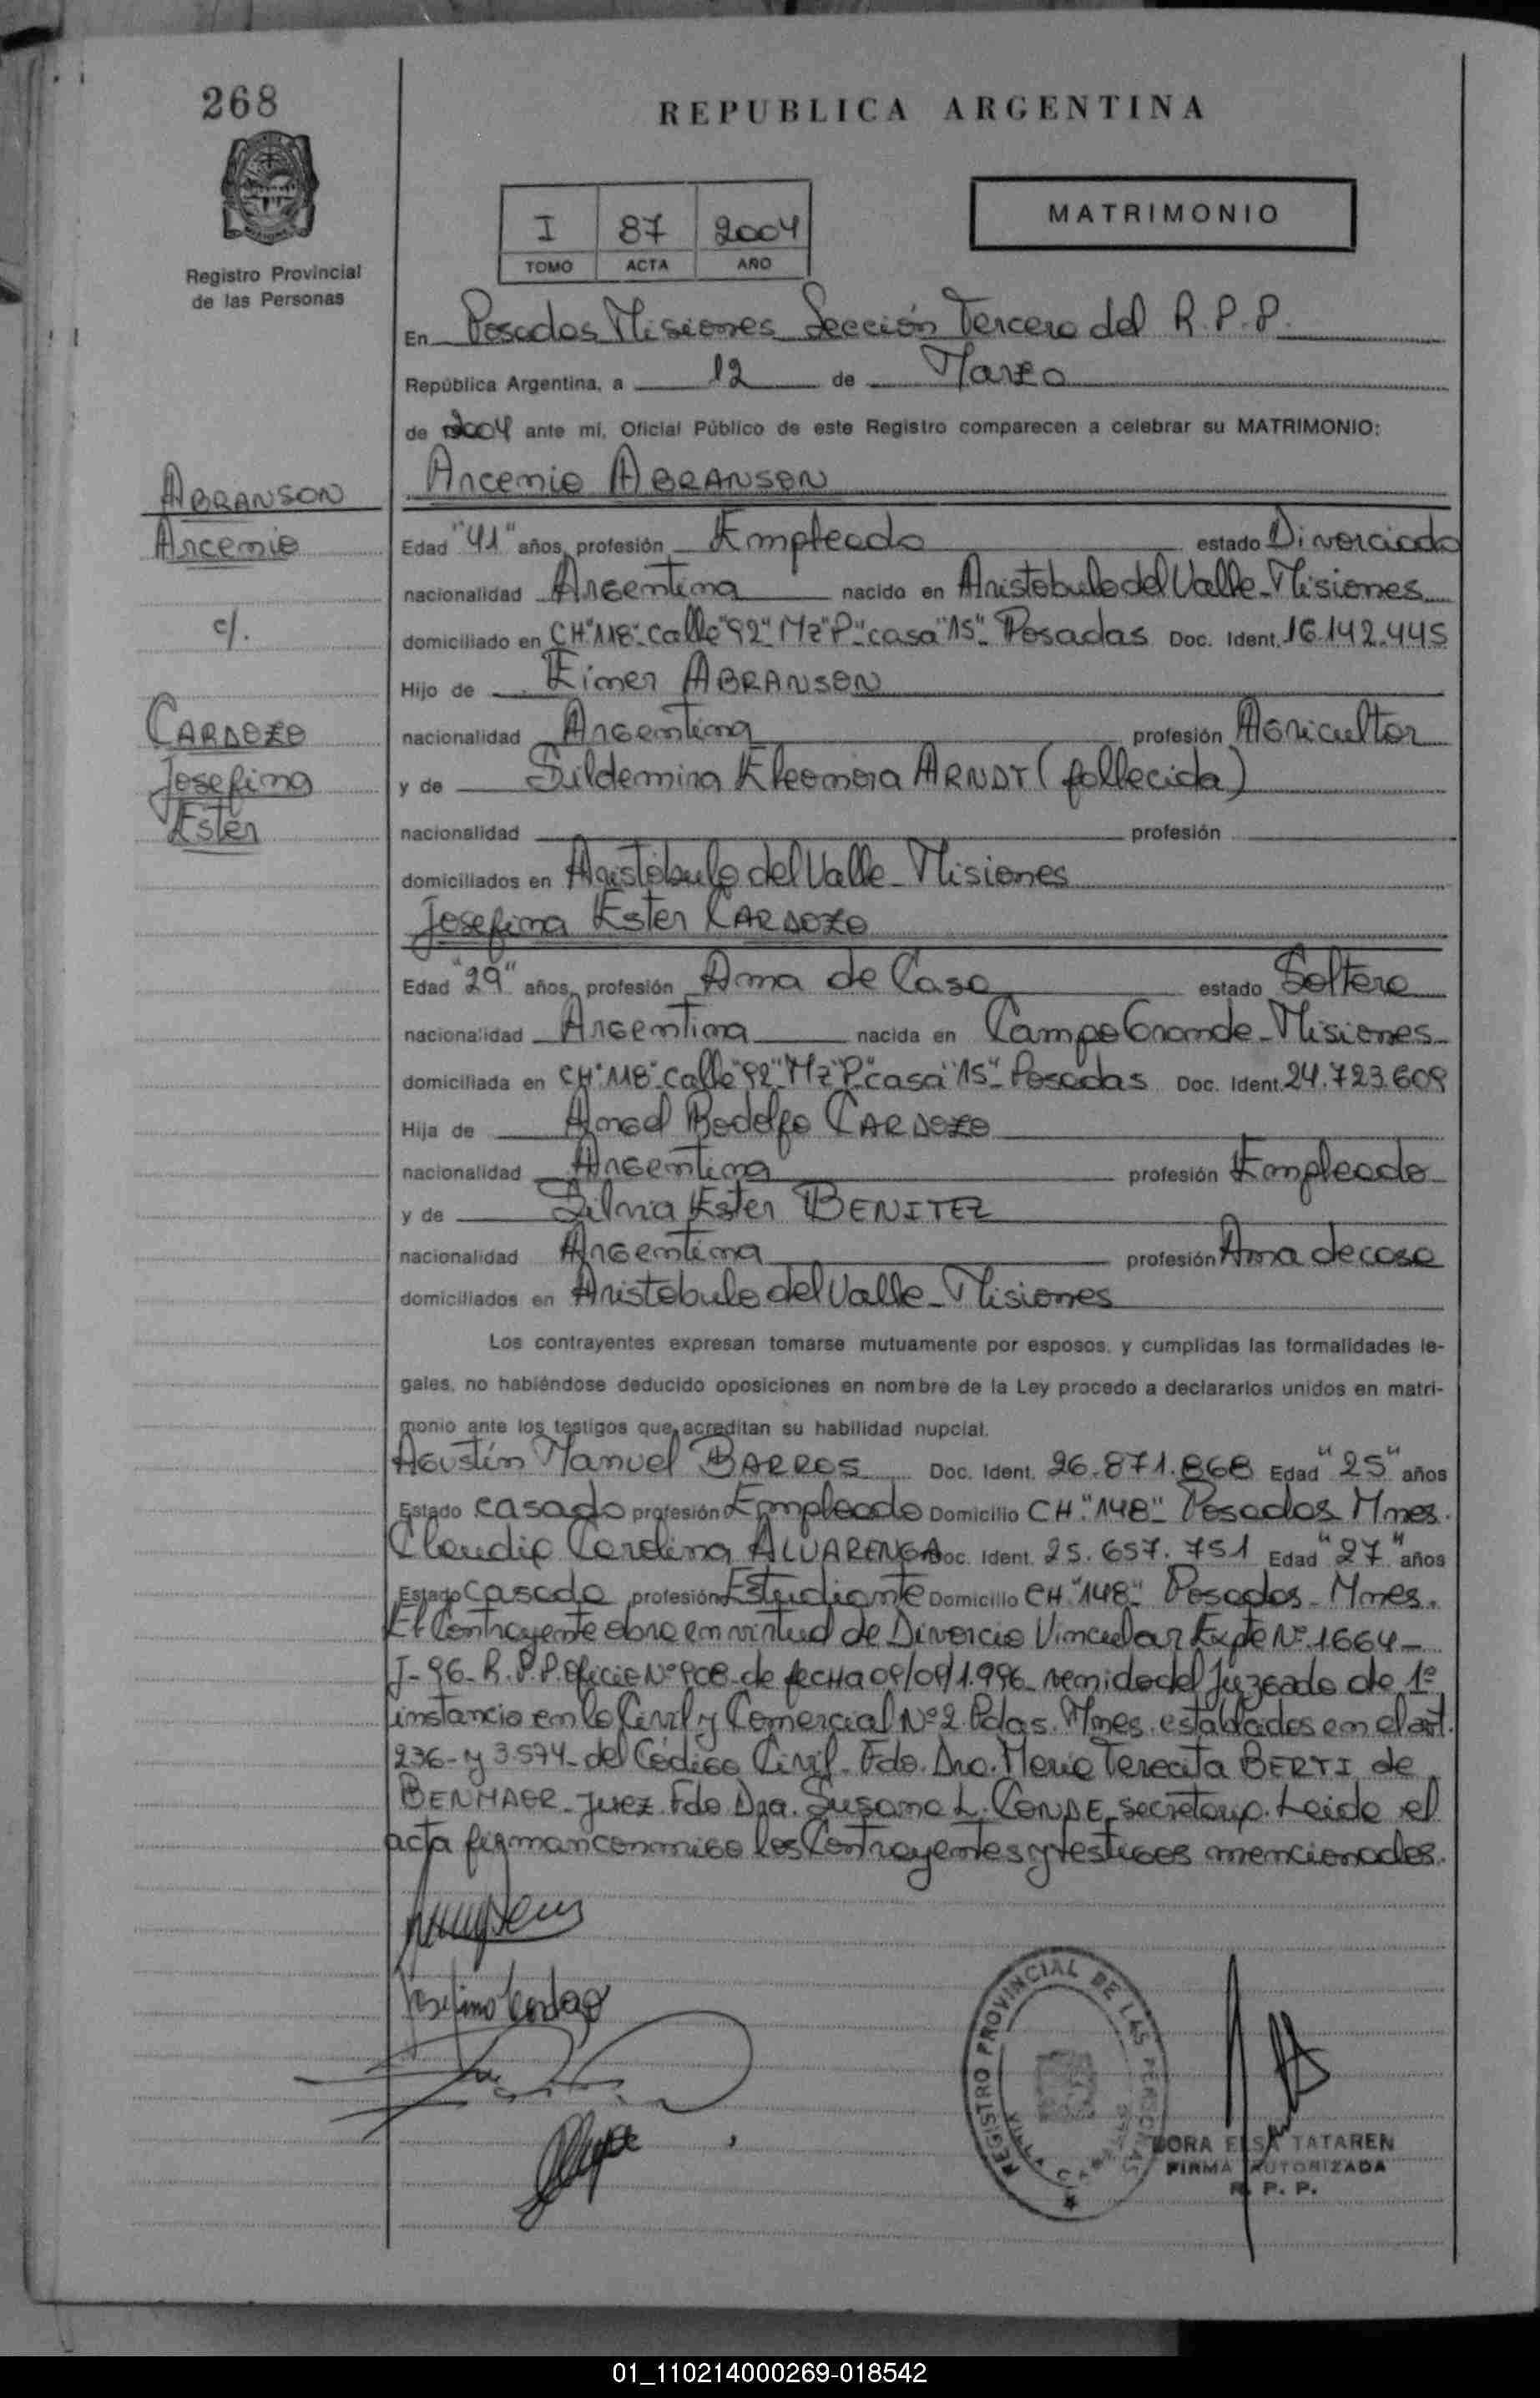 268
REPUBLICA ARGENTINA
I 87 2004
TOMO ACTA AÑO
MATRIMONIO
Registro Provincial
de las Personas
En Posadas Misiones Sección Tercera del R.P.P.
República Argentina, a 12 de Marzo
de 2004 ante mí, Oficial Público de este Registro comparecen a celebrar su MATRIMONIO:
ABRANSON
Arcenio
c/.
CARDOZO
Josefina
Ester
Arcenio ABRANSON
Edad "41" años, profesión Empleado estado Divorciado
nacionalidad Argentina nacido en Aristobulo del Valle-Misiones
domiciliado en CH"118"-calle"92"-Mz"P"-casa"15"-Posadas Doc. Ident. 16.142.445
Hijo de Eimer ABRANSON
nacionalidad Argentina profesión Agricultor
y de Sildemira Eleonora ARNDT (fallecida)
nacionalidad profesión
domiciliados en Aristóbulo del Valle-Misiones
Josefina Ester CARDOZO
Edad "29" años, profesión Ama de Casa estado Soltera
nacionalidad Argentina nacida en Campo Grande-Misiones
domiciliada en CH"118"-calle"92"-Mz"P"-casa"15"-Posadas Doc. Ident. 24.723.609
Hija de Angel Rodolfo CARDOZO
nacionalidad Argentina profesión Empleado
y de Silvia Ester BENITEZ
nacionalidad Argentina profesión Ama de casa
domiciliados en Aristobulo del Valle-Misiones
Los contrayentes expresan tomarse mutuamente por esposos, y cumplidas las formalidades le-
gales, no habiéndose deducido oposiciones en nombre de la Ley procedo a declararlos unidos en matri-
monio ante los testigos que acreditan su habilidad nupcial.
Agustín Manuel BARROS Doc. Ident. 26.871.868 Edad "25" años
Estado casado profesión Empleado Domicilio CH."148"- Posadas Mnes.
Claudia Carolina ALVARENGA Doc. Ident. 25.657.751 Edad "27" años
Estado Casada profesión Estudiante Domicilio CH"148"- Posadas-Mnes.
El Contrayente obra en virtud de Divorcio Vincular Expte Nº 1664-
J-96-R.P.P. Oficio Nº 908-de fecha 09/09/1.996 venido del Juzgado de 1º
instancia en lo Civil y Comercial Nº2.Pdas.Mnes. establcidos en el art.
236-y 3.574-del Código Civil-Fdo. Dra. Maria Terecita BERTI de
Juez. Fdo Dra. Susana L. CONDE, secretaria. Leida el
acta firman conmigo los Contrayentes y testigos mencionados.
Josefina Cardozo
REGISTRO PROVINCIAL DE LAS PERSONAS
DORA ELSA TATAREN
FIRMA AUTORIZADA
R. P. P.
01_110214000269-018542